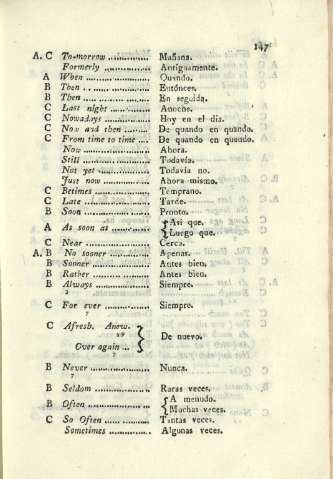 147
A. C To-morrow ............... Mañana.
Formerly ............... Antiguamente.
A When ............... Quando.
B Then ............... Entónces.
B Then ............... En seguida.
C Last night ............... Anoche.
C Nowadays ............... Hoy en el dia.
C Now and then ......... De quando en quando.
C From time to time .... De quando en quando.
Now ............... Ahora.
Still ............... Todavía.
Not yet ............... Todavía no.
Just now ............... Ahora mismo.
C Betimes ............... Temprano.
C Late ............... Tarde.
B Soon ............... Pronto.
A As soon as ............... { Asi que.
Luego que.
C Near ............... Cerca.
A. B No sooner ............... Apenas.
B Sooner ............... Antes bien.
B Rather ............... Antes bien.
B Always ............... Siempre.
C For ever ............... Siempre.
C Afresh. Anew. }
Over again ... De nuevo.
B Never ............... Nunca.
B Seldom ............... Raras veces.
B Often ............... { A menudo.
Muchas veces.
C So Often ............... Tantas veces.
Sometimes ............... Algunas veces.